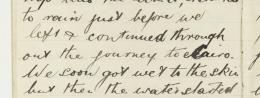 to rain just before we
left & continued through
out the journey to Cairo.
We soon got wet to the skin
but then the water started